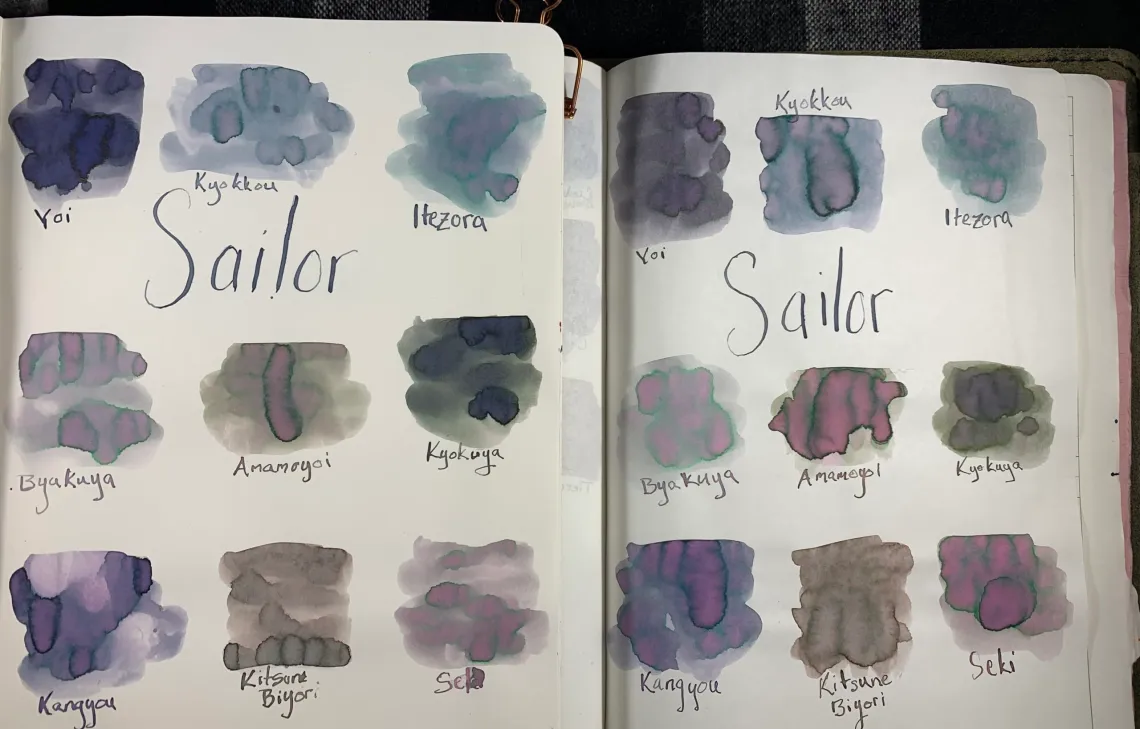 Yoi
Kyokkou
Itezora
Sailor
Byakuya
Amamoyoi
Kyokuya
Kangyou
Kitsune
Biyori
Seki
Kyokkou
Yoi
Itezora
Sailor
Byakuya
Amamoyoi
Kyokuya
Kangyou
Kitsune
Biyori
Seki